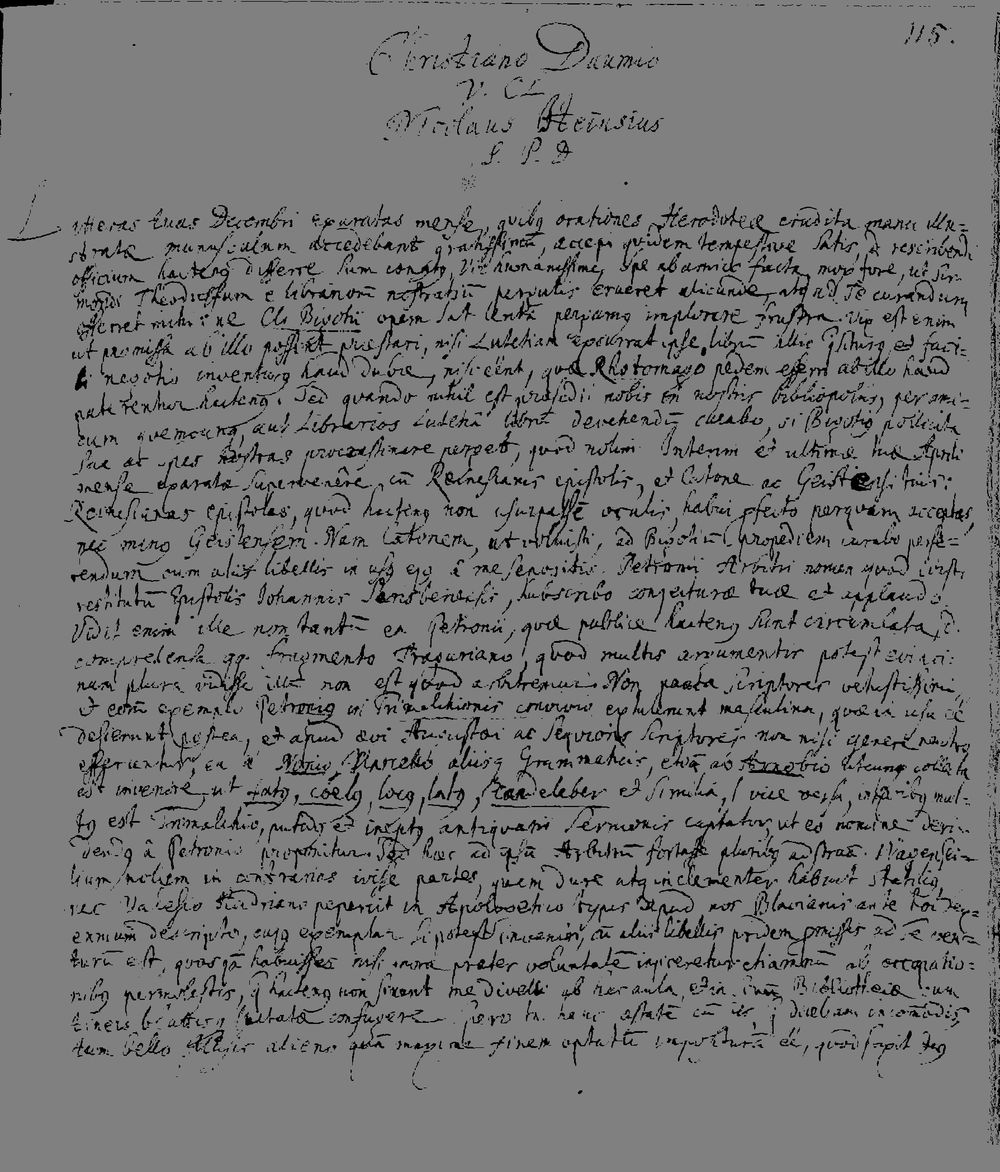 115.
Christiano Daumio
V. Cl.
Nicolaus Heinsius
S. P. D
Litteras tuas Decembri exaratas mense, quibq orationes Herodoteæ erudita manu illu=
stratæ munusculum accedebant gratissimū, accepi quidem tempestive satis, rescribendi
officium hacteng differre sum conatg, Vir humanissime, spe ab amicis facta, mox fore, ut Sir-
mondi Theodulfum e librariorū nostratiū pergulis erueret alicunde, atq ad Te curandum
offerret mihi: ne Cl. Bigotii opem sat lentā pergamg implorare frustra. Vix est enim
ut promissa ab illo possint præstari, nisi Lutetiam excurrat ipse, librū illic et faci-
li negotio inventurg haud dubie, nisi eēnt, quæ Rhotomago pedem efferri ab illo haud
paterentur hacteng. Sed quando nihil est præsidii nobis in nostris bibliopolis, per ami-
cum quemcunq, aut Librarios Lutetiā librū devehendū curabo, si Bigotig pollicita
sua ac spes nostras procrastinare perget, quod nolim. Interim et ultimæ tuæ Aprili
mense exaratæ supervenêre, cū Reinesianis epistolis, et Catone ac Geistensi tuis:
Reinesianas epistolas, quod hacteng non usurpassē oculis, habui pfecto perquam acceptas,
nec ming Geistensem. Nam Catonem, ut voluisti, ad Bigotiū propediem curabo perfe=
rendum cum aliis libellis in usg ejg â me sepositis. Petronii Arbitri nomen quod
restitutū Epistolis Iohannis Sarisberiensis, subscribo conjecturæ tuæ et applaudo
Vidit enim ille non tantū ea Petronii, quæ publice hacteng sunt circumlata,
comprehensa qq. fragmento Traguriano, quod multis argumentis potest evinci:
nam plura vidisse illū non est quod arbitremur. Non pauca scriptores vetustissimi,
et eorū exemplo Petronig in Trimalchionis convivio extulerunt masculina, quæ in usu eē
desierunt postea, et apud ævi Augustæi ac sequioris scriptores non nisi genere neutro
efferuntur, ea â Nonio, Marcello aliisq Grammaticis, etiā ab Arnobio utcunq collecta
est invenire, ut fatg, cœlg, locg, latg, candelaber et similia, vice versa, in quibq mul-
tg est Trimalchio, putidg et ineptg antiquarii sermonis captator, ut eo nomine deri-
dendg â Petronio proponitur. Sed hæc ad ipsū Arbitrū fortasse pluribq adstruā. Wagensei-
lium nollem in contrarias ivisse partes, quem dure atq inclementer habuit Statilig,
nec Valesio Hadriano pepercit in Apologetico typis apud nos Blavianis ante
ennium descripto, cujg exemplar si potest inveniri, cū aliis libellis pridem pmissis ad Te ven-
turū est, quos jā habuisses nisi mora præter voluntatē injiceretur etiamnū ab occupatio-
nibg permolestis, q hacteng non sinunt me divelli ab hac aula, et in Bibliothecæ cum
tineis blattisq luctatæ confugere. Spero tn. hac æstate cū iis, dicebam incōmodis,
tum bello Musis alieno quā maxime finem optatū impositum eē, quod faxit